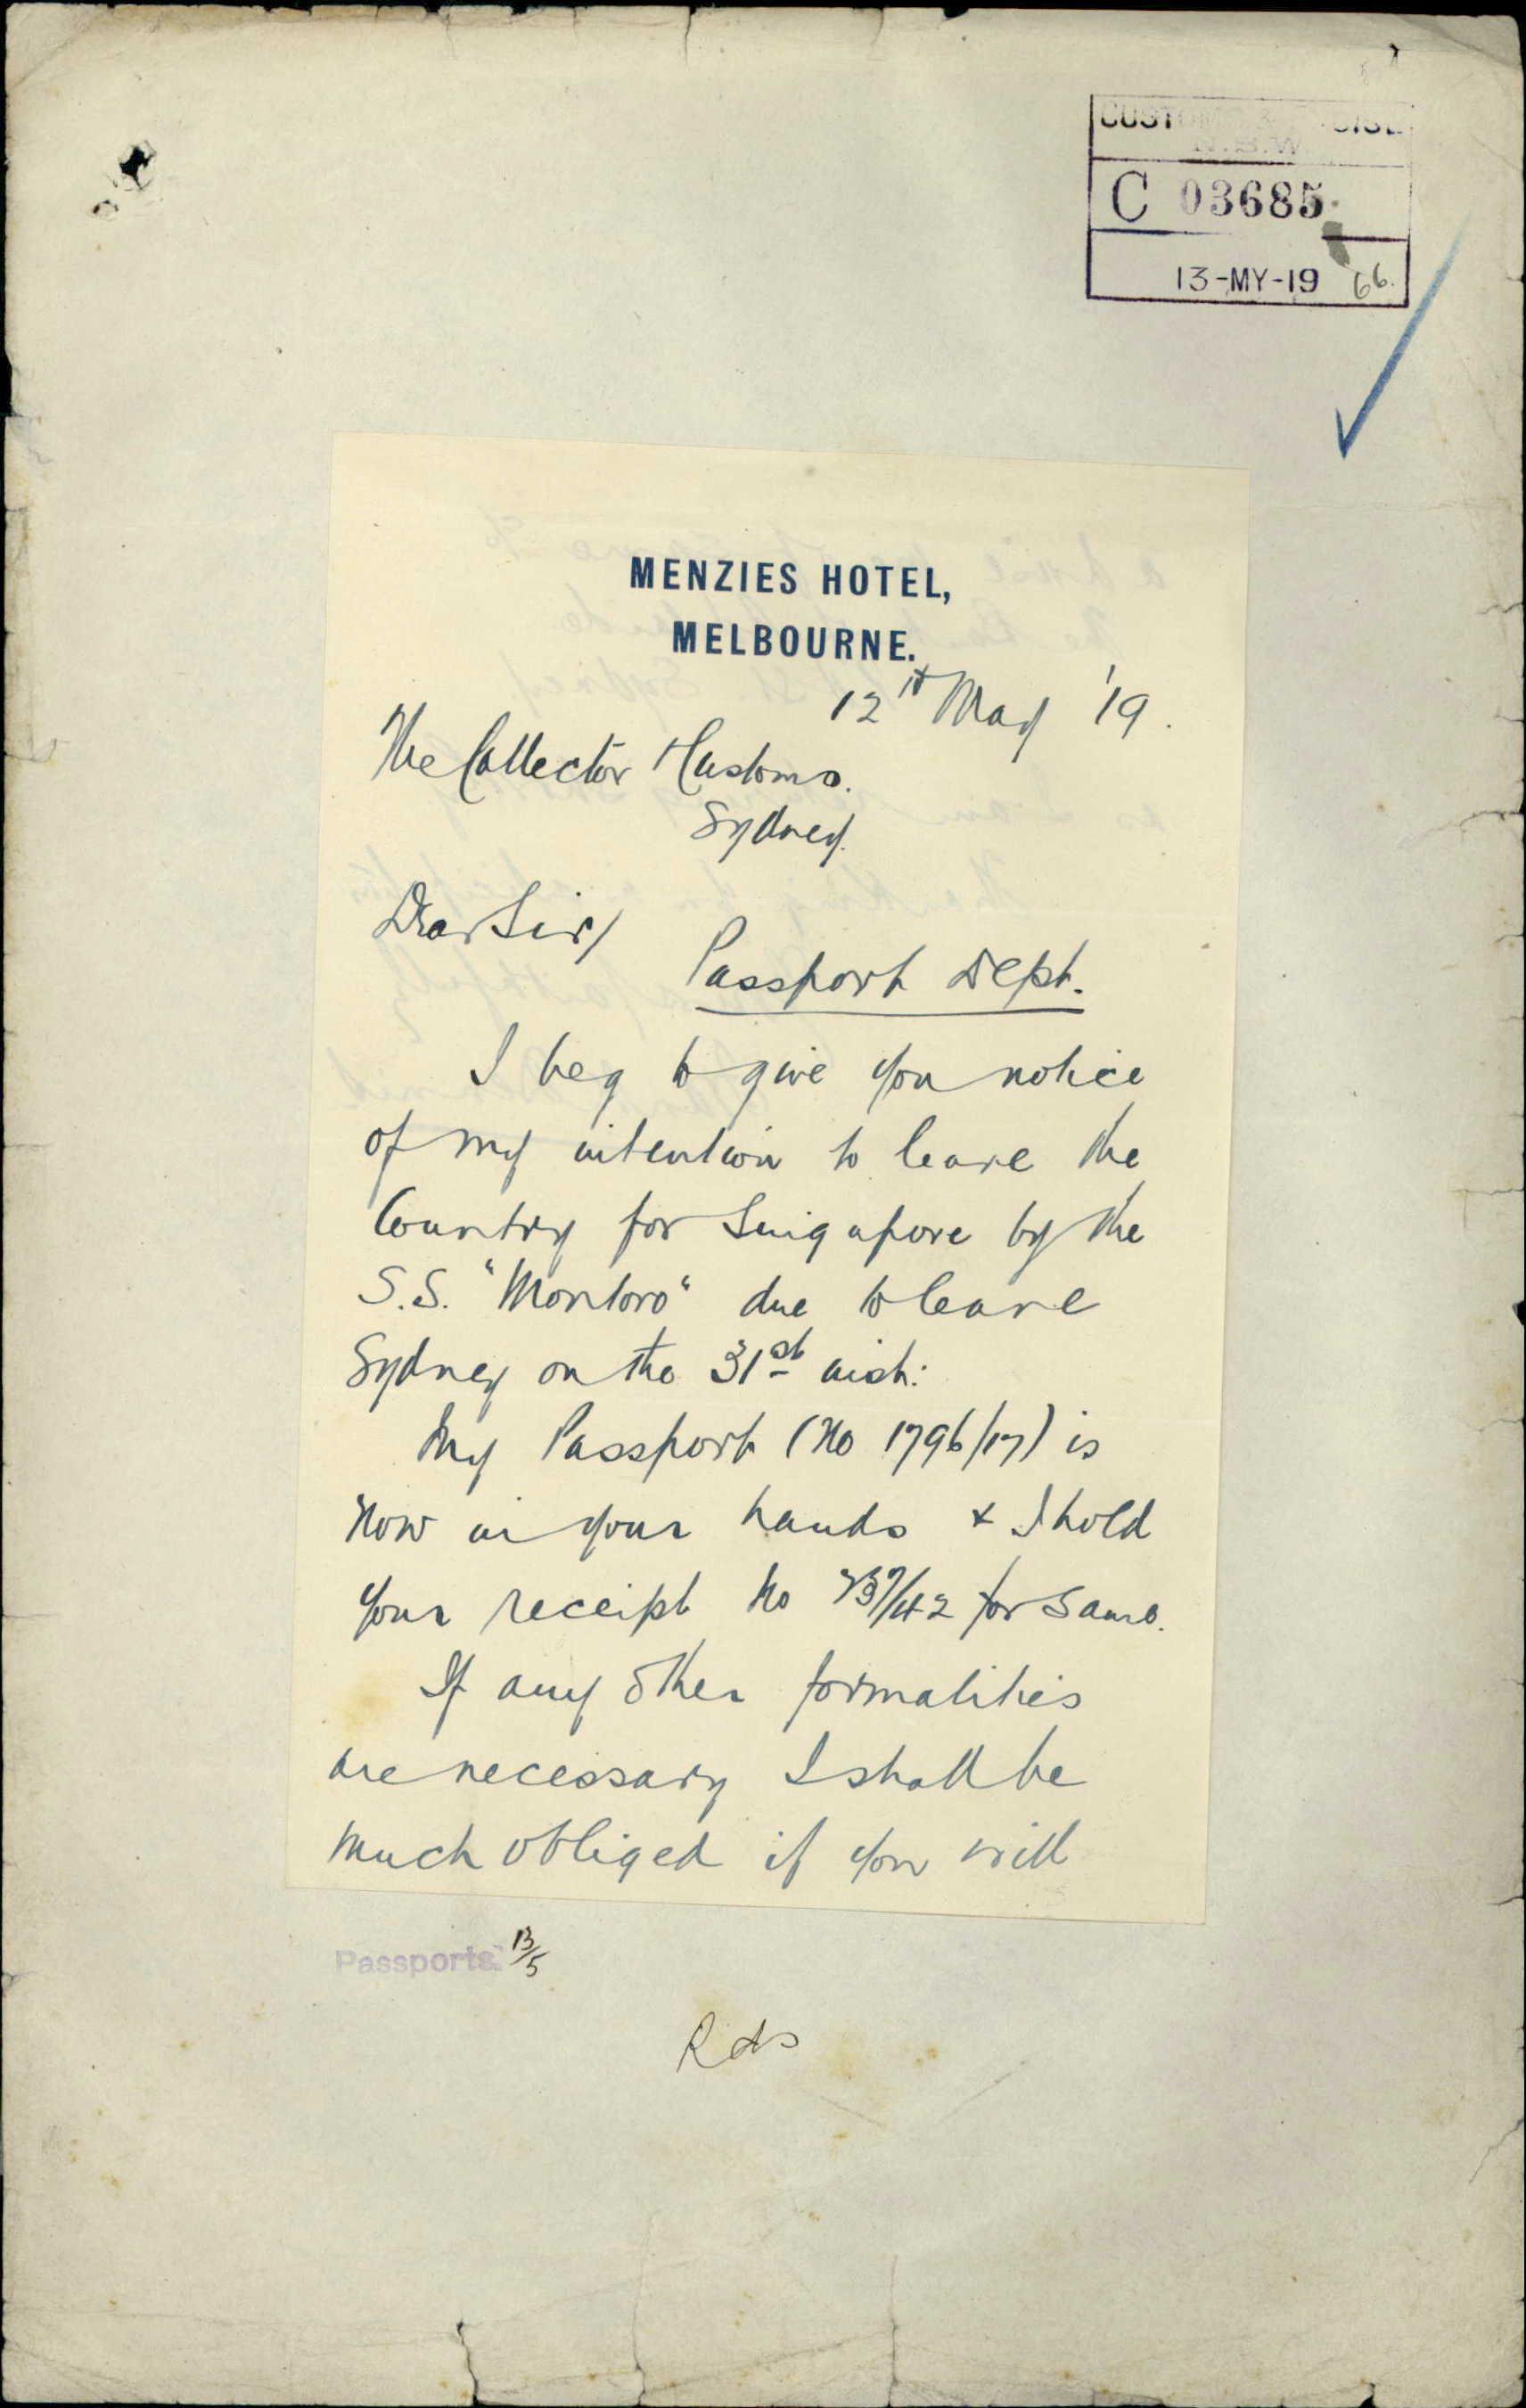 CUSTOMS & EXCISE
N.S.W.
C 03685
13-MY-19 66.
MENZIES HOTEL,
MELBOURNE.
12th May '19.
The Collector Customs.
Sydney.
Dear Sir/
Passport Dept.
I beg to give you notice
of my intention to leave the
Country for Singapore by the
S.S. "Montoro" due to leave
Sydney on the 31st inst:
My Passport (No 1796/17) is
now in your hands & I hold
your receipt No /42 for same.
If any other formalities
are necessary I shall be
much obliged if you will
Passports. 13/5